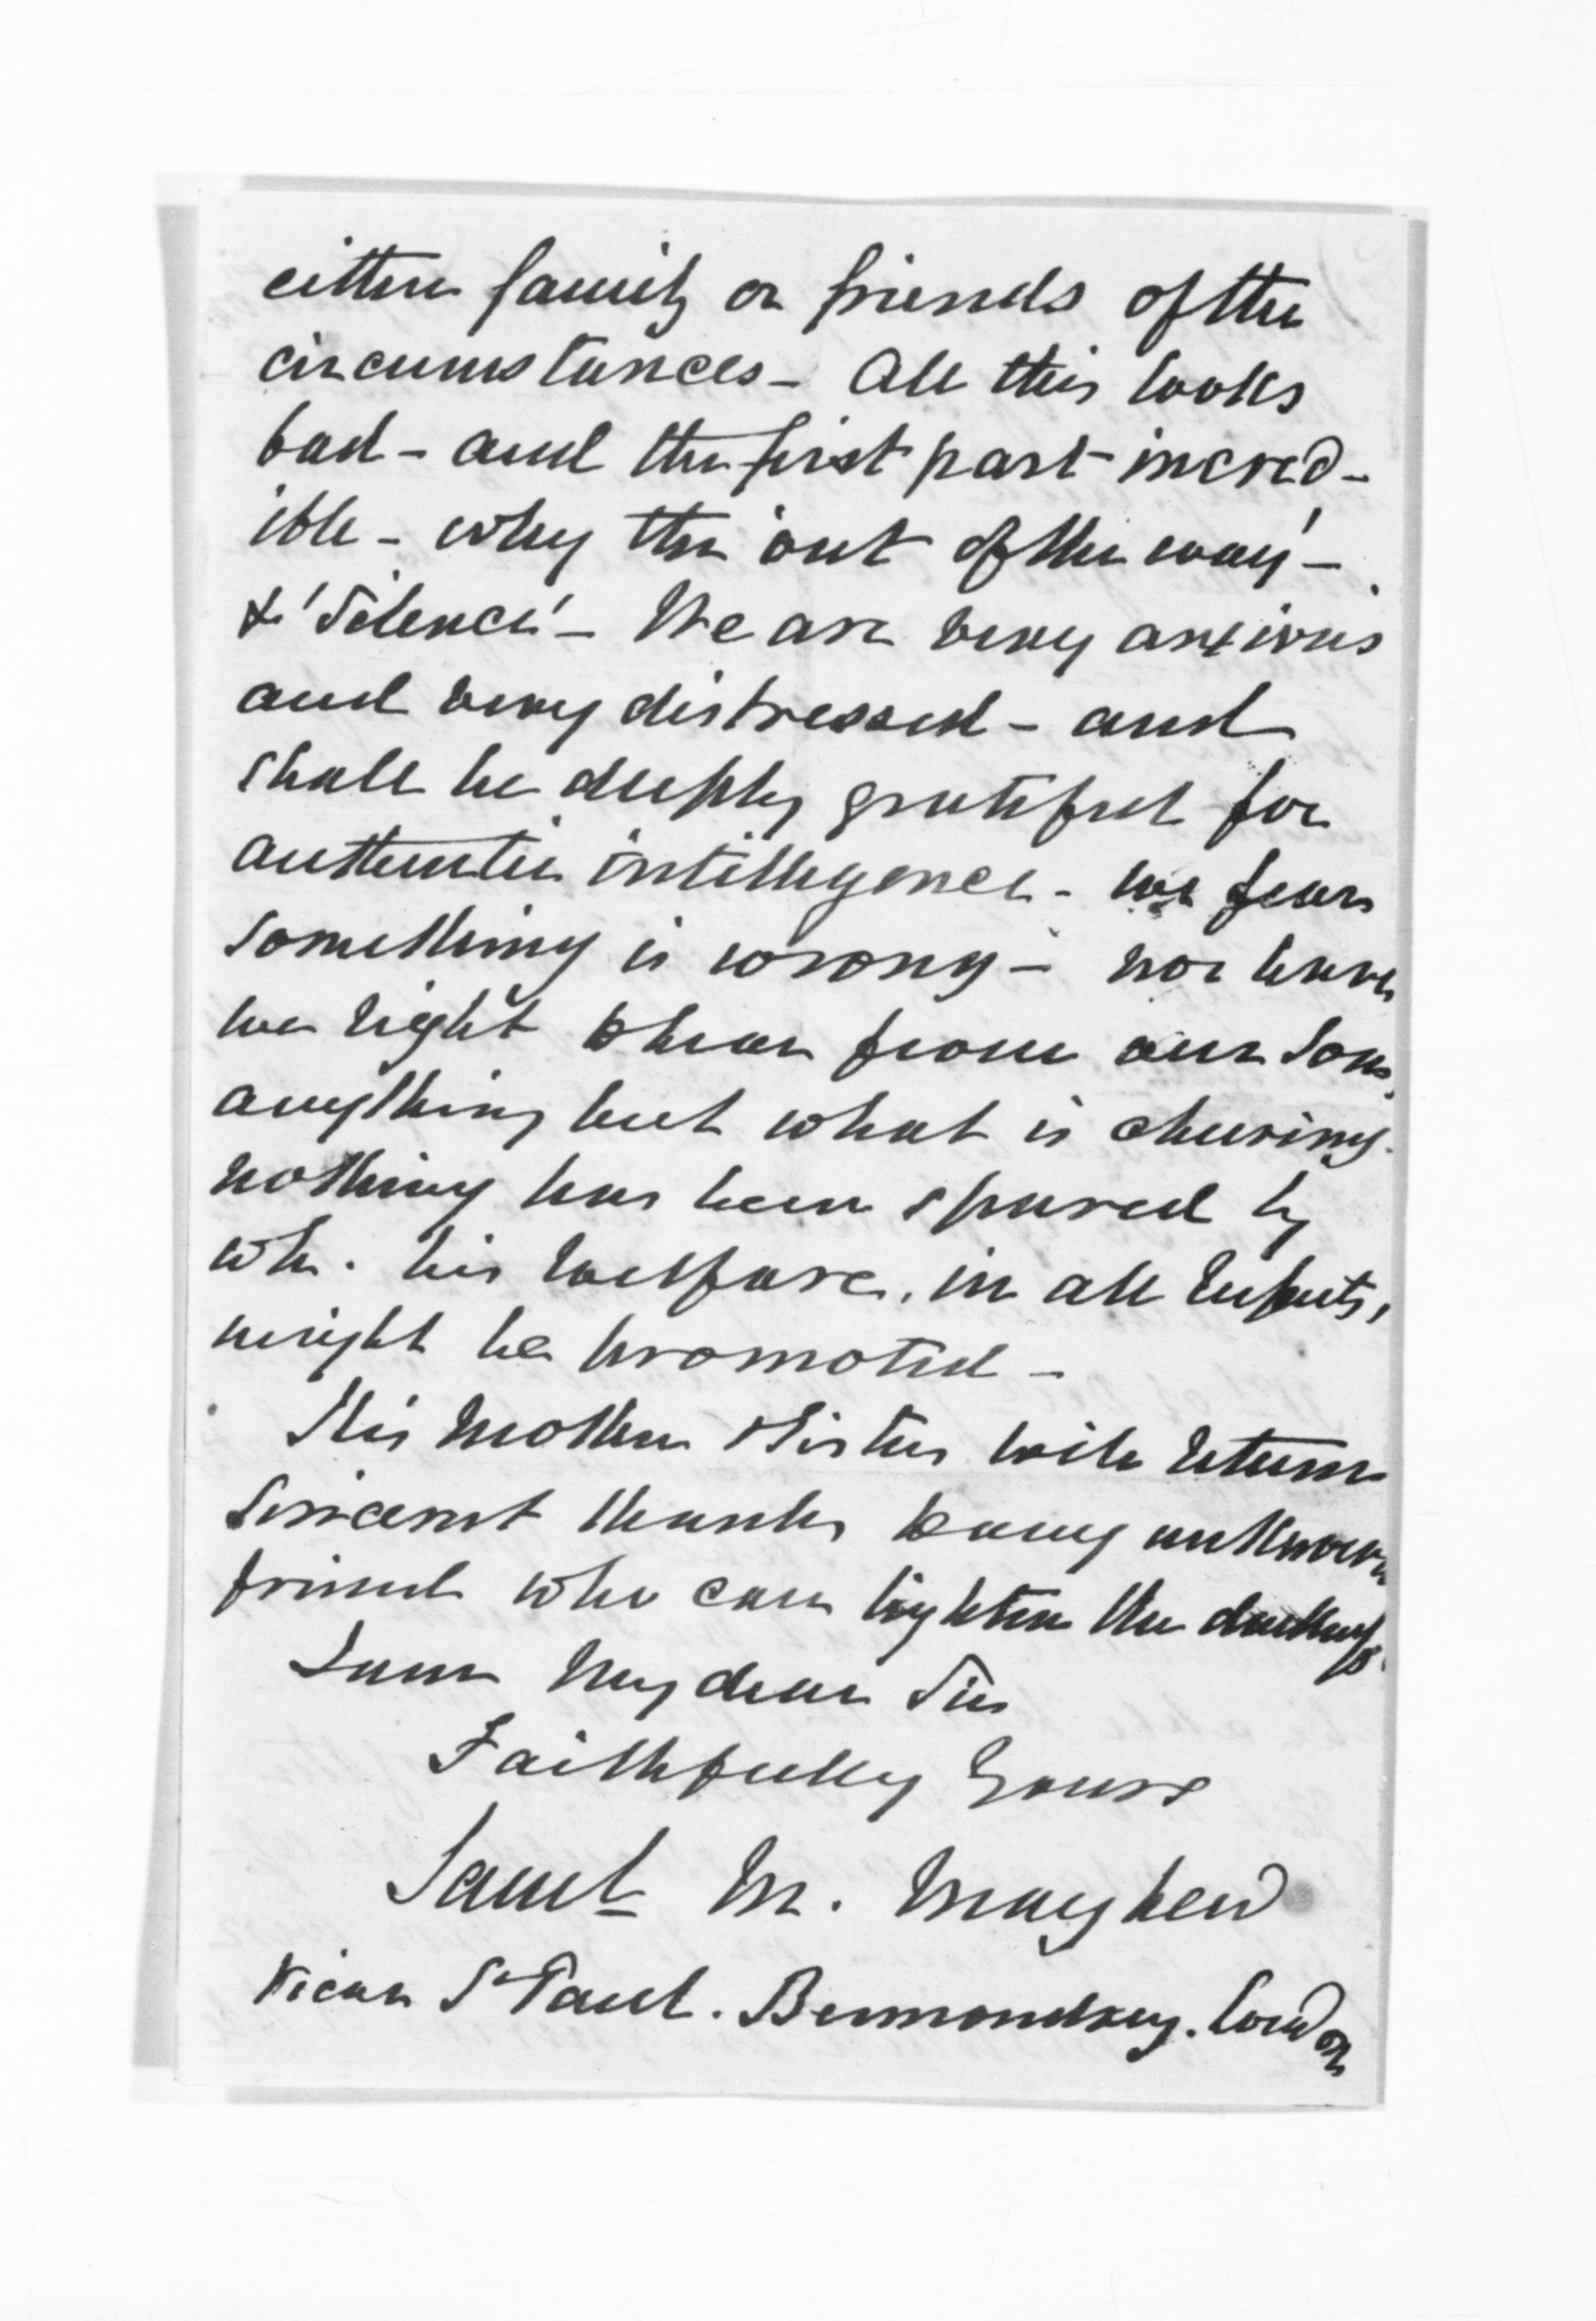 either family or friends of the
circumstances - All this looks
bad - and the first part incred-
ible - why the 'out of the way' -
& 'Silence' - We are very anxious
and very distressed - and
shall be deeply grateful for
authentic intelligence - we fear
something is wrong - nor have
we right to hear from our Son,
anything but what is cheering.
nothing has been spared by
wh. his welfare, in all respects,
might be promoted -
His Mother & Sister will return
sincerest thanks to any unknown
friend who can lighten the
I am My dear Sir
Faithfully Yours
Saml M. Mayhew
Vicar St Paul. Bermondsey. London